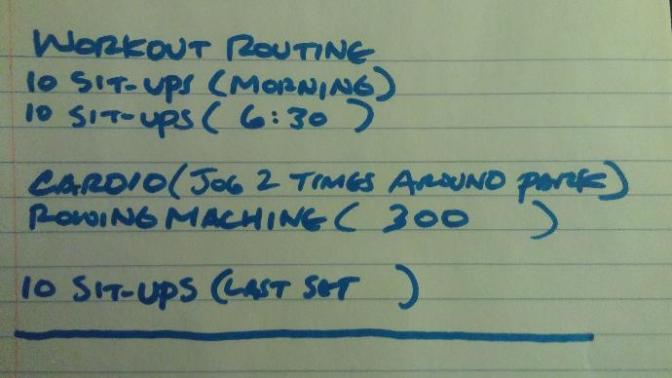 WORKOUT ROUTINE
10 SIT-UPS (MORNING)
10 SIT-UPS ( 6:30 )
CARDIO (JOG 2 TIMES AROUND PARK)
ROWING MACHINE ( 300 )
10 SIT-UPS (LAST SET )